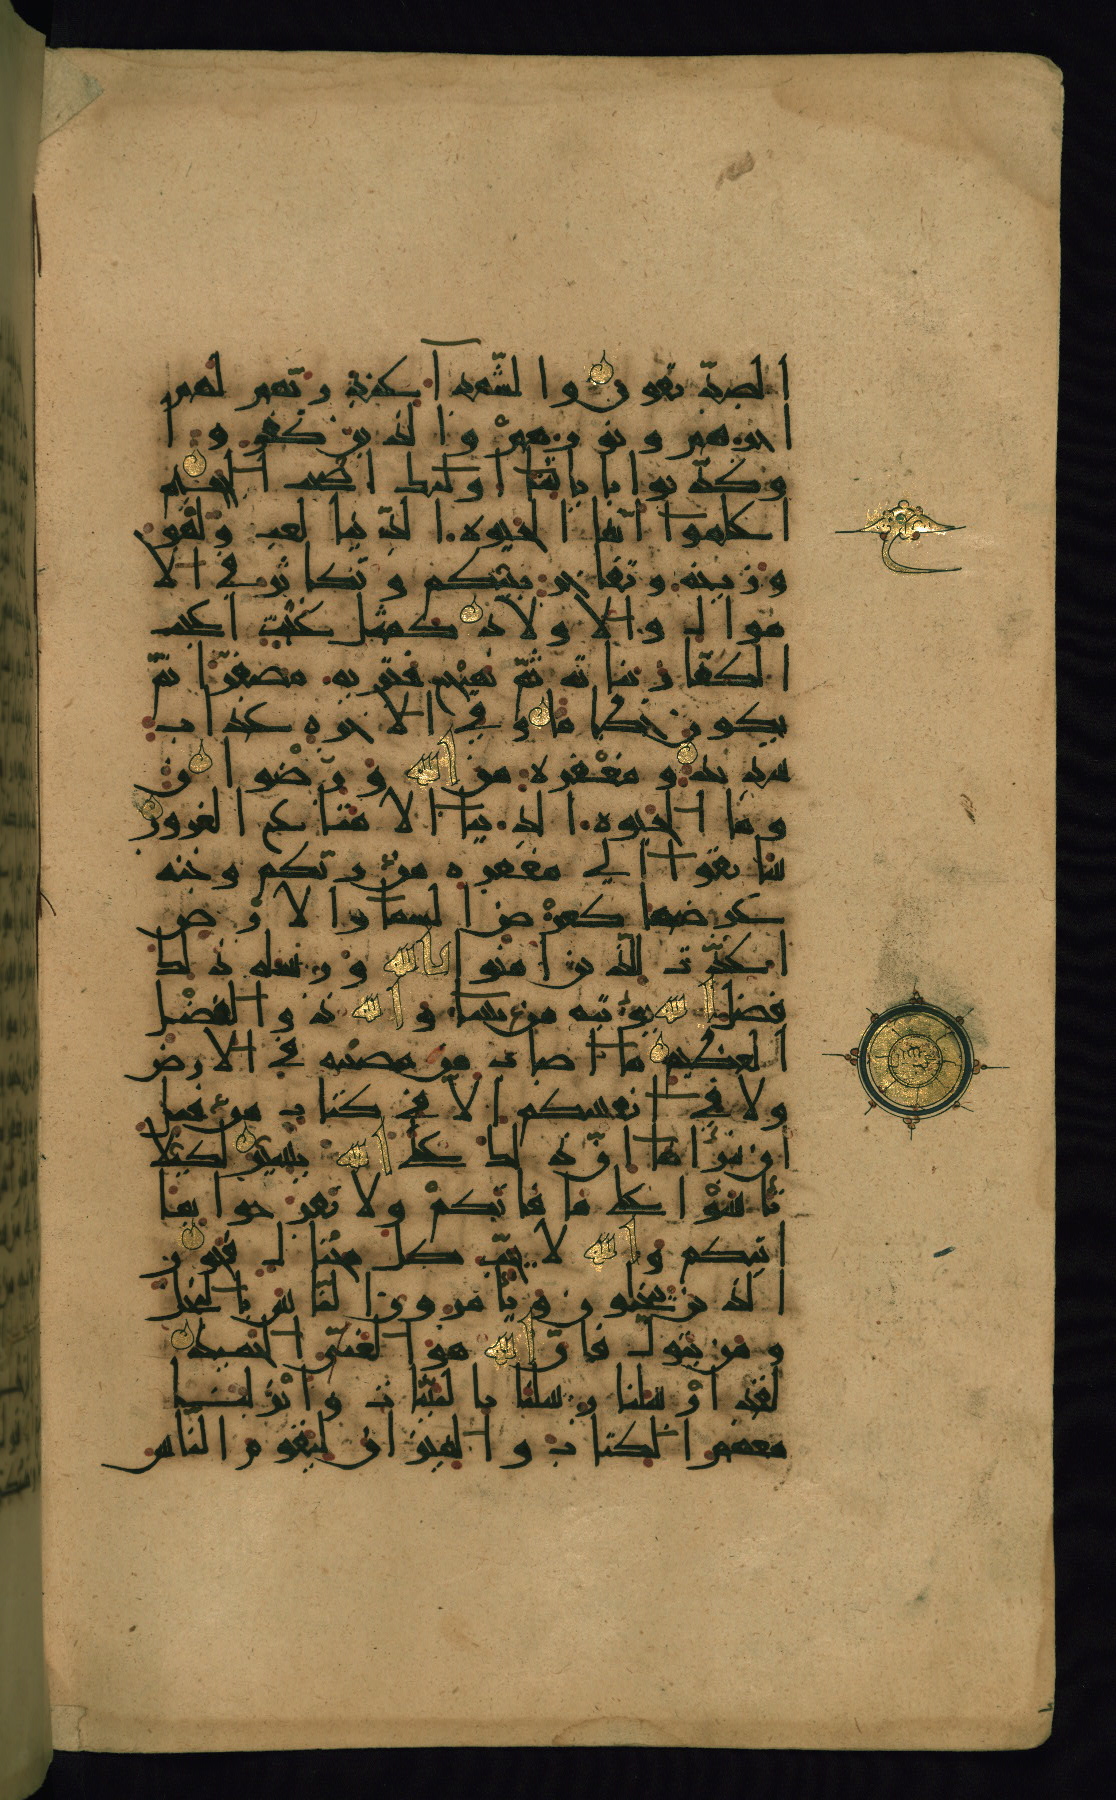 الصدّيقون والشّهدآ عند ربّهم لهم
اجرهم ونورهم والذين كفروا
وكذّبوا باياتنا اولئك اصحب الجحيم
اعلموا انّما الحيوة الدّنيا لعب ولهو
وزينة وتفاخر بينكم وتكاثر في الا
موال والاولاد كمثل غيث اعجب
الكفّار نباته ثمّ يهيج فتريه مصفرّا ثمّ
يكون حطاما وفي الاخرة عذاب
شديد ومغفرة من الله ورضوان
وما الحيوة الدنيا الا متاع الغرور
سابقوا الى مغفرة من ربّكم وجنة
عرضها كعرض السمآ والارض
اعدّت للّذين امنوا بالله ورسله ذلك
فضل الله يؤتيه من يشآ والله ذو الفضل
العظيم ما اصاب من مصيبة في الارض
ولا في انفسكم الّا في كتاب من قبل
ان نبراها انّ ذلك على الله يسير لكيلا
تاسوا على ما فاتكم ولا تفرحوا بما
اتيكم والله لا يحبّ كل مختال فخور
الذين يبخلون ويأمرون النّاس بالبخل
ومن يتولّ فانّ الله هو الغنيّ الحميد
لقد ارسلنا رسلنا بالبيّنات وانزلنا
معهم الكتاب والميزان ليقوم النّاس